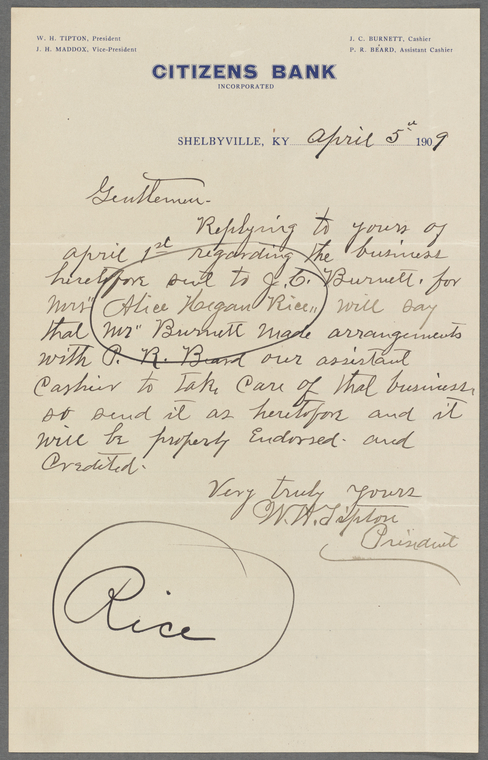 W. H. TIPTON, President
J. H. MADDOX, Vice-President
J. C. BURNETT, Cashier
P. R. BEARD, Assistant Cashier
CITIZENS BANK
INCORPORATED
SHELBYVILLE, KY April 5th 1909
Gentlemen-
Replying to yours of
April 1st regarding the business
heretofore sent to J. C. Burnett, for
Mrs" Alice Hegan Rice" will say
that Mr" Burnett made arrangements
with P. R. Beard our assistant
Cashier to take care of that business,
so send it as heretofore and it
will be properly Endorsed- and
Credited-
Very truly yours
W. H. Tipton
President
Rice